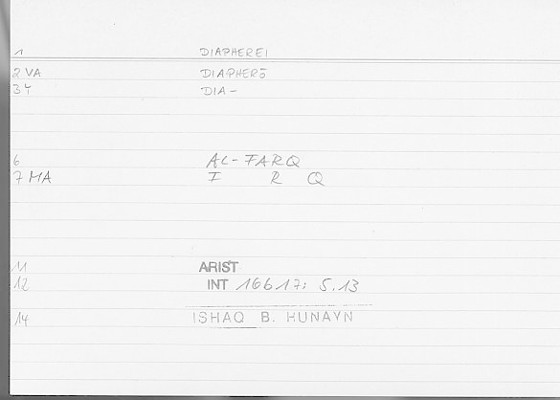 1 DIAPHEREI
2 VA DIAPHERŌ
3 Y DIA-
6 AL-FARQ
7 MA F R Q
11 ARIST
12 INT 16b17: 5.13
14 ISHAQ B. HUNAYN